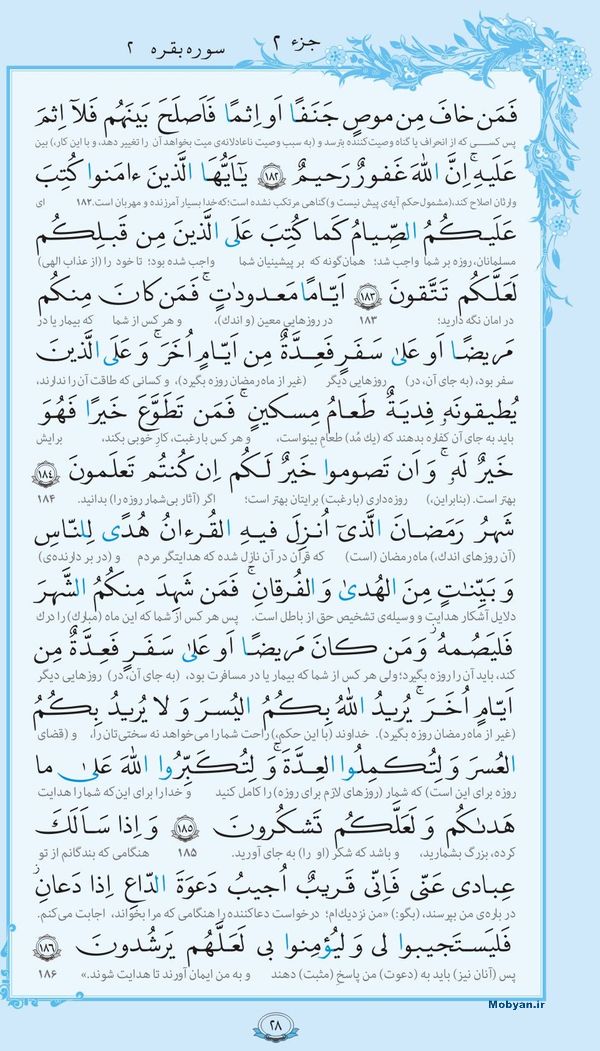 جزء ۲
سوره بقره ۲
فَمَن خافَ مِن موصٍ جَنَفًا اَو اِثمًا فَاَصلَحَ بَينَهُم فَلاۤ اِثمَ
پس کسی که از انحراف یا گناه وصیت‌کننده بترسد و (به سبب وصیت ناعادلانه‌ی میت بخواهد آن را تغییر دهد، و با این کار،) بین
عَلَيهِ ۚ اِنَّ اللّٰهَ غَفورٌ رَحيمٌ ﴿۱۸۲﴾ يٰۤاَيُّهَا الَّذينَ ءامَنوا كُتِبَ
وارثان اصلاح کند، (مشمول حکم آیه‌ی پیش نیست و) گناهی مرتکب نشده است؛ که خدا بسیار آمرزنده و مهربان است. ۱۸۲ ای
عَلَيكُمُ الصِّيامُ كَما كُتِبَ عَلَى الَّذينَ مِن قَبلِكُم
مسلمانان، روزه بر شما واجب شد؛ همان‌گونه که بر پیشینیان شما واجب شده بود؛ تا خود را (از عذاب الهی)
لَعَلَّكُم تَتَّقونَ ﴿۱۸۳﴾ اَيّامًا مَعدوداتٍ ۚ فَمَن كانَ مِنكُم
در امان نگه دارید؛ ۱۸۳ در روزهایی معین (و اندک)، و هر کس از شما که بیمار یا در
مَريضًا اَو عَلىٰ سَفَرٍ فَعِدَّةٌ مِن اَيّامٍ اُخَرَ ۚ وَ عَلَى الَّذينَ
سفر بود، (به جای آن، در) روزهایی دیگر (غیر از ماه رمضان روزه بگیرد)، و کسانی که طاقت آن را ندارند،
يُطيقونَهٗ فِديَةٌ طَعامُ مِسكينٍ ۚ فَمَن تَطَوَّعَ خَيرًا فَهُوَ
باید به جای آن کفاره بدهند که (یک مُد) طعام بینواست، و هر کس با رغبت، کار خوبی بکند، برایش
خَيرٌ لَهٗ ۚ وَ اَن تَصوموا خَيرٌ لَكُم اِن كُنتُم تَعلَمونَ ﴿۱۸۴﴾
بهتر است. (بنابراین،) روزه‌داری (با رغبت) برایتان بهتر است؛ اگر (آثار بی‌شمار روزه را) بدانید. ۱۸۴
شَهرُ رَمَضانَ الَّذىۤ اُنزِلَ فيهِ القُرءانُ هُدًى لِلنّاسِ
(آن روزهای اندک،) ماه رمضان (است) که قرآن در آن نازل شده که هدایتگر مردم و (در بر دارنده‌ی)
وَ بَيِّناتٍ مِنَ الهُدىٰ وَ الفُرقانِ ۚ فَمَن شَهِدَ مِنكُمُ الشَّهرَ
دلایل آشکار هدایت و وسیله‌ی تشخیص حق از باطل است. پس هر کس از شما که این ماه (مبارک) را درک
فَليَصُمهُ ۖ وَ مَن كانَ مَريضًا اَو عَلىٰ سَفَرٍ فَعِدَّةٌ مِن
کند، باید آن را روزه بگیرد؛ ولی هر کس از شما که بیمار یا در مسافرت بود، (به جای آن، در) روزهایی دیگر
اَيّامٍ اُخَرَ ۗ يُريدُ اللّٰهُ بِكُمُ اليُسرَ وَ لا يُريدُ بِكُمُ
(غیر از ماه رمضان روزه بگیرد). خداوند (با این حکم،) راحت شما را می‌خواهد نه سختی‌تان را، و (قضای
العُسرَ وَ لِتُكمِلُوا العِدَّةَ وَ لِتُكَبِّرُوا اللّٰهَ عَلىٰ ما
روزه برای این است) که شمار (روزهای لازم برای روزه) را کامل کنید و خدا را برای این که شما را هدایت
هَدىٰكُم وَ لَعَلَّكُم تَشكُرونَ ﴿۱۸۵﴾ وَ اِذا سَاَلَكَ
کرده، بزرگ بشمارید، و باشد که شکر (او را) به جای آورید. ۱۸۵ هنگامی که بندگانم از تو
عِبادى عَنّى فَاِنّى قَريبٌ ۖ اُجيبُ دَعوَةَ الدّاعِ اِذا دَعانِ ۖ
در باره‌ی من بپرسند، (بگو:) «من نزدیک‌ام؛ درخواست دعاکننده را هنگامی که مرا بخواند، اجابت می‌کنم.
فَليَستَجيبوا لى وَ ليُؤمِنوا بى لَعَلَّهُم يَرشُدونَ ﴿۱۸۶﴾
پس (آنان نیز) باید به (دعوت) من پاسخ (مثبت) دهند و به من ایمان آورند تا هدایت شوند.» ۱۸۶
Mobyan.ir
۲۸